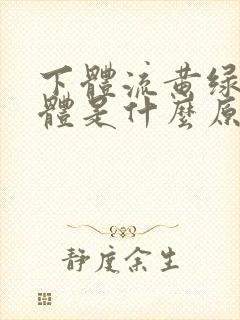 下體流黃綠
體是什麼原
靜度余生